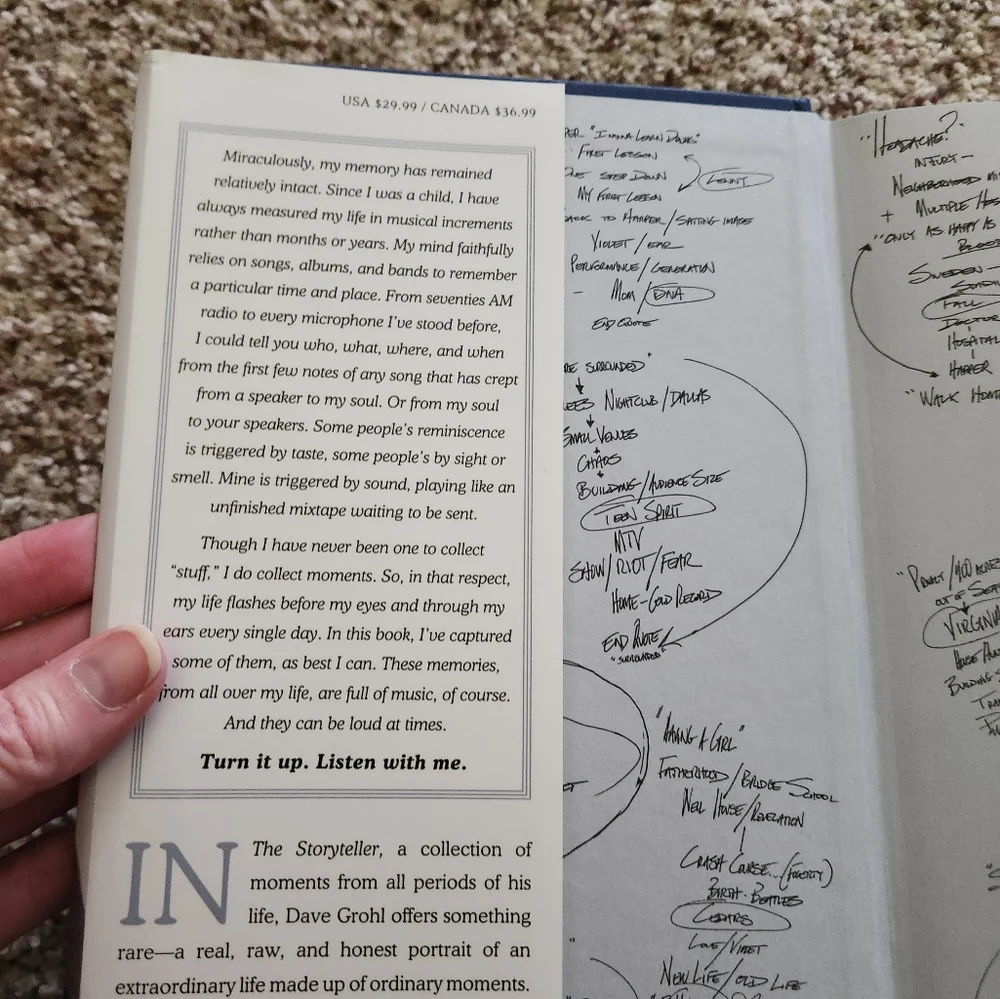 USA $29.99 / CANADA $36.99
Miraculously, my memory has remained
relatively intact. Since I was a child, I have
always measured my life in musical increments
rather than months or years. My mind faithfully
relies on songs, albums, and bands to remember
a particular time and place. From seventies AM
radio to every microphone I've stood before,
I could tell you who, what, where, and when
from the first few notes of any song that has crept
from a speaker to my soul. Or from my soul
to your speakers. Some people's reminiscence
is triggered by taste, some people's by sight or
smell. Mine is triggered by sound, playing like an
unfinished mixtape waiting to be sent.
Though I have never been one to collect
"stuff," I do collect moments. So, in that respect,
my life flashes before my eyes and through my
ears every single day. In this book, I've captured
some of them, as best I can. These memories,
from all over my life, are full of music, of course.
And they can be loud at times.
Turn it up. Listen with me.
IN The Storyteller, a collection of
moments from all periods of his
life, Dave Grohl offers something
rare—a real, raw, and honest portrait of an
extraordinary life made up of ordinary moments.
"I WANNA LEARN DRUMS"
FIRST LESSON
STEP DOWN
LENNY
MY FIRST LESSON
BACK TO HARPER/SITTING IMAGE
VIOLET/EAR
PERFORMANCE/GENERATION
- MOM/DNA
END QUOTE
SURROUNDED"
NIGHTCLUB/DALLAS
SMALL VENUES
CHAOS
BUILDING/AUDIENCE SIZE
TEEN SPIRIT
MTV
SHOW/RIOT/FEAR
HOME-GOLD RECORD
END QUOTE
"SURROUNDED"
"HAVING A GIRL"
FATHERHOOD/BRIDGE SCHOOL
NEIL HOUSE/REVELATION
CRASH COURSE...(FOGERTY)
BIRTH-BEATLES
CEDARS
LOVE/VIOLET
NEW LIFE/OLD LIFE
"HEADACHE?"
INJURY-
NEIGHBORHOOD
+ MULTIPLE
"ONLY AS HAPPY AS
SWEDEN-
FALL
DOCTOR
HOSPITAL
HARPER
"WALK HOME
OUT OF
VIRGINIA
BUILDING